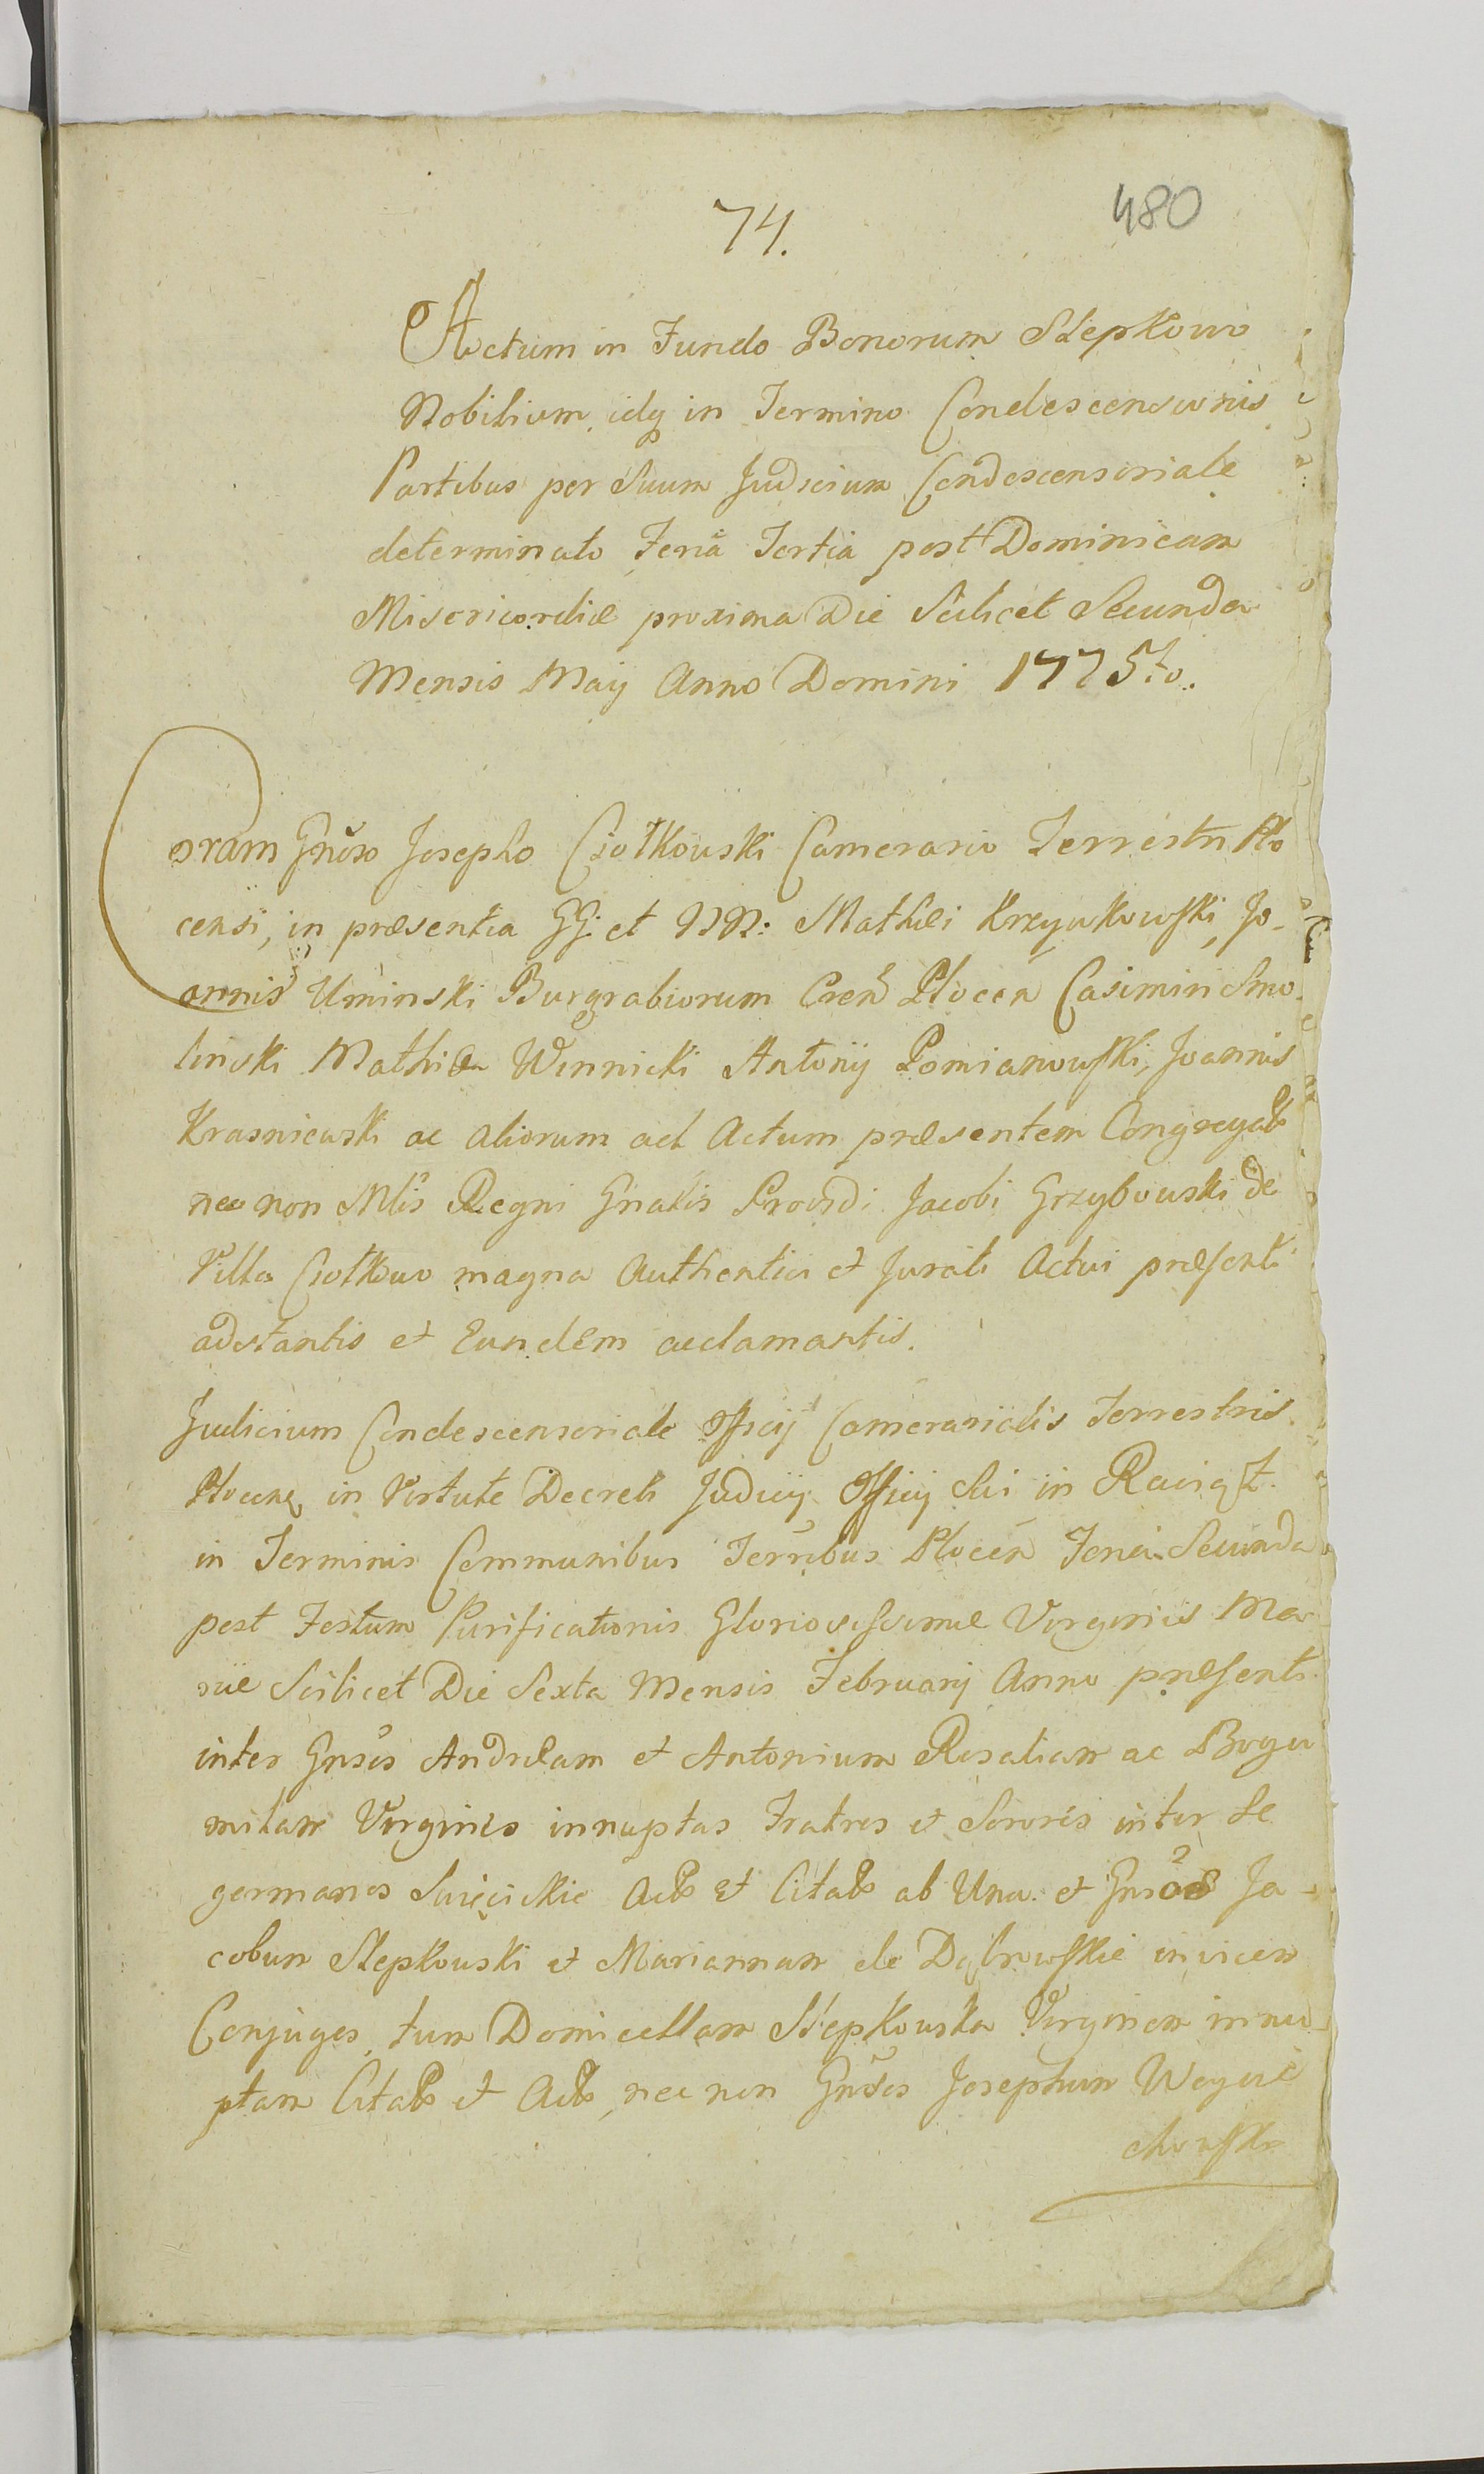 74.
480
Actum in Fundo Bonorum Slepkowo
Nobilium idq in Termino Condescensionis
Partibus per Suum Judicium Condescensoriale
determinato Feria Tertia post Dominicam
Misericordiæ proxima Die Scilicet Secunda
Mensis Maij Anno Domini 1775to.
Coram Gnoso Josepho Ciołkowski Camerario Terrestri Plo
censi, in præsentia GG: et NN: Mathæi Krzywkowski, Jo-
annis Uminski Burgrabiorum Cren Plocen Casimiri Smo
linski Mathiæ Winnicki Antonij Pomianowski, Joannis
Krasniewski ac aliorum ad Actum præsentem Congregat
nec non Mlis Regni Gnalis Providi Jacobi Grzybowski de
Villa Ciołkowo magna Authentici et Jurati Actui præsenti
adstantis et Eundem acclamantis.
Judicium Condescensoriale Officij Camerarialis Terrestris
Plocens in Virtute Decreti Judicij Officij Sui in Raciąż
in Terminis Communibus Terribus Plocen Feria Secunda
post Festum Purificationis Gloriosissimæ Virginis Ma
riæ Scilicet Die Sexta Mensis Februarij Anno præsenti
inter Gnsos Andræam et Antonium Rosaliam ac Bogu
milam Virgines innuptas Fratres et Sorores inter se
germanos Swięcickie Act et Citat ab Una et Gnsos Ja-
cobum Slepkowski et Mariannam de Dąbrowskie invicem
Conjuges, tum Domicellam Slepkowska Virginem innu-
ptam Citat et Act, nec non Gnsos Josephum Węgie